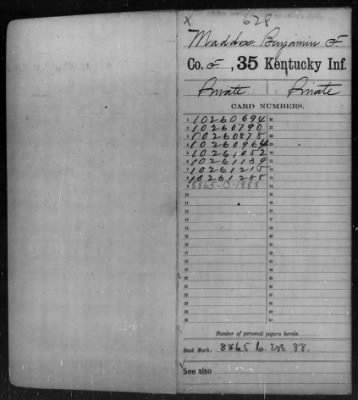 X 628
Maddox, Benjamin F
Co. F, 35 Kentucky Inf.
Private | Private
CARD NUMBERS.
1 10260694
2 10260790
3 10260878
4 10260964
5 10261052
6 10261139
7 10261215
8 10261288
9 8865-C-1888
Number of personal papers herein
Book Mark: 8865 C 88.
See also